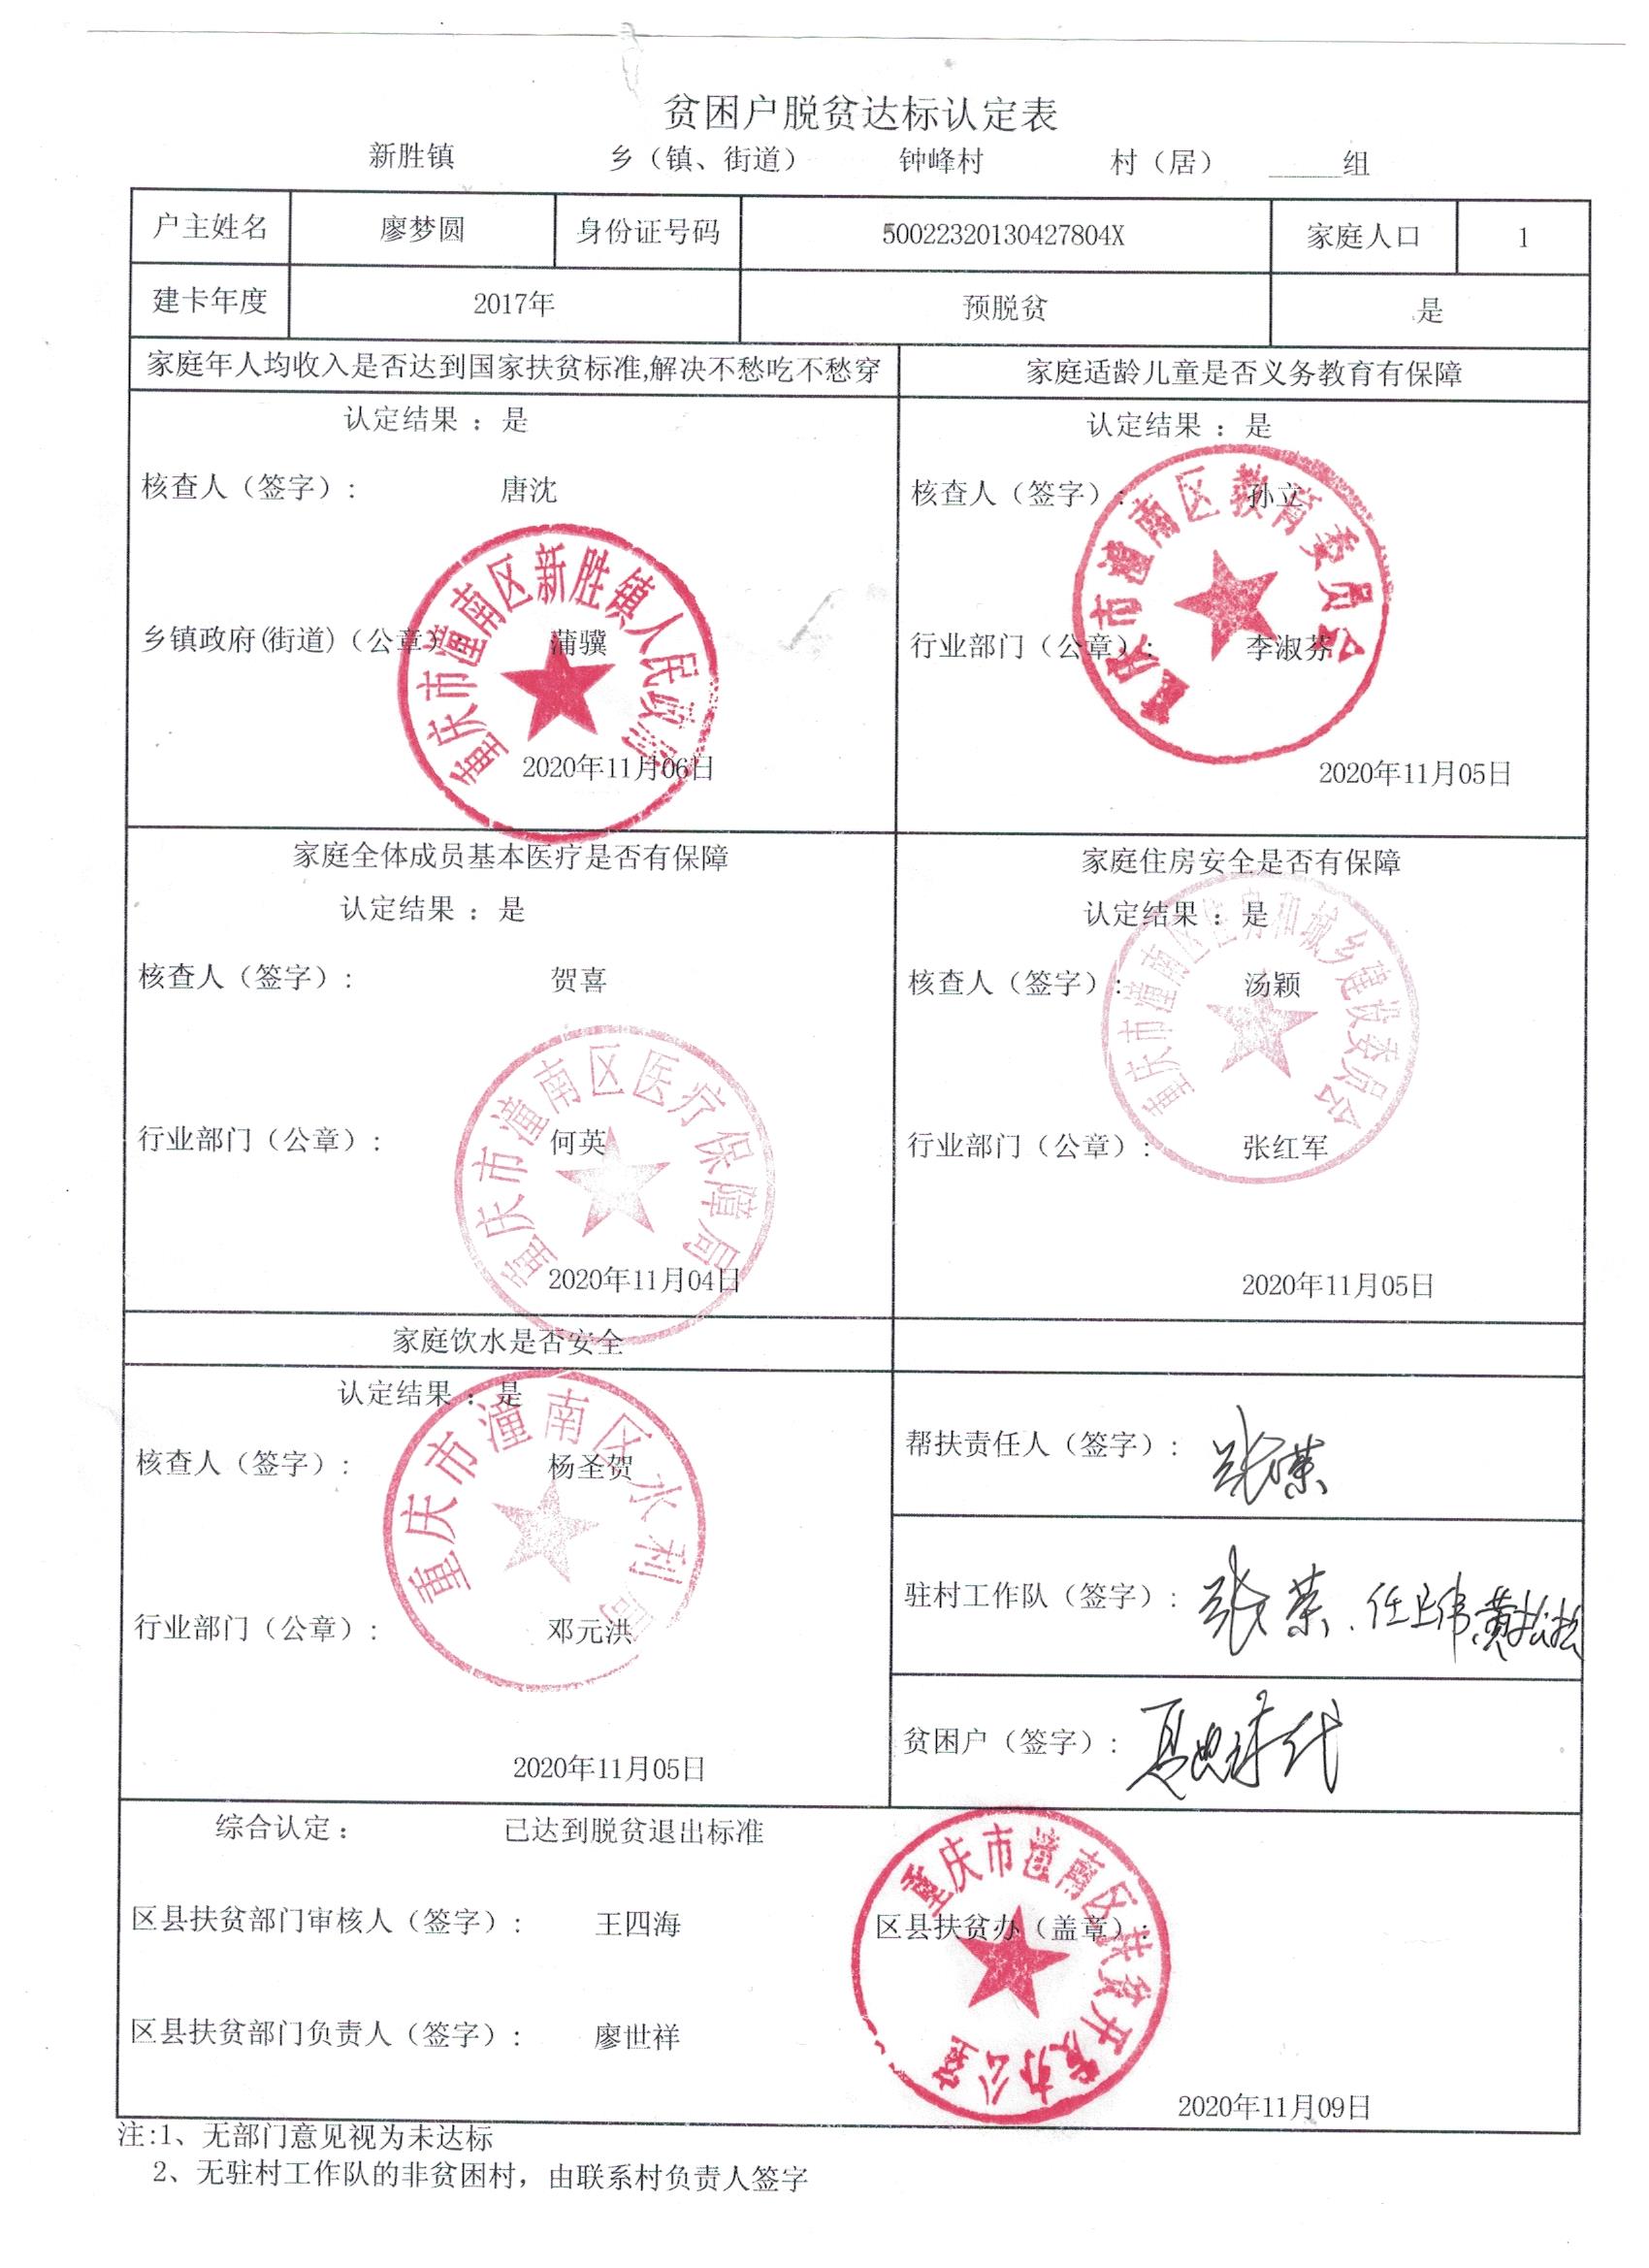 贫困户脱贫达标认定表
新胜镇 乡（镇、街道） 钟峰村 村（居） _____组
户主姓名 廖梦圆 身份证号码 50022320130427804X 家庭人口 1
建卡年度 2017年 预脱贫 是
家庭年人均收入是否达到国家扶贫标准,解决不愁吃不愁穿 家庭适龄儿童是否义务教育有保障
认定结果 ：是
核查人（签字）: 唐沈
重庆市潼南区新胜镇人民政府
乡镇政府(街道)（公章）: 蒲骥
2020年11月06日
认定结果 ：是
核查人（签字）: 孙立
重庆市潼南区教育委员会
行业部门（公章）: 李淑芬
2020年11月05日
家庭全体成员基本医疗是否有保障
认定结果 ：是
核查人（签字）: 贺喜
重庆市潼南区医疗保障局
行业部门（公章）: 何英
2020年11月04日
家庭住房安全是否有保障
认定结果 ：是
重庆市潼南区住房和城乡建设委员会
核查人（签字）: 汤颖
行业部门（公章）: 张红军
2020年11月05日
家庭饮水是否安全
认定结果 ：是
重庆市潼南区水利局
核查人（签字）: 杨圣贺
行业部门（公章）: 邓元洪
2020年11月05日
帮扶责任人（签字）: 张荣
驻村工作队（签字）: 张荣、任卫伟 黄松松
贫困户（签字）:
综合认定： 已达到脱贫退出标准
重庆市潼南区扶贫开发办公室
区县扶贫部门审核人（签字）: 王四海 区县扶贫办（盖章）:
区县扶贫部门负责人（签字）: 廖世祥
2020年11月09日
注:1、无部门意见视为未达标
2、无驻村工作队的非贫困村，由联系村负责人签字